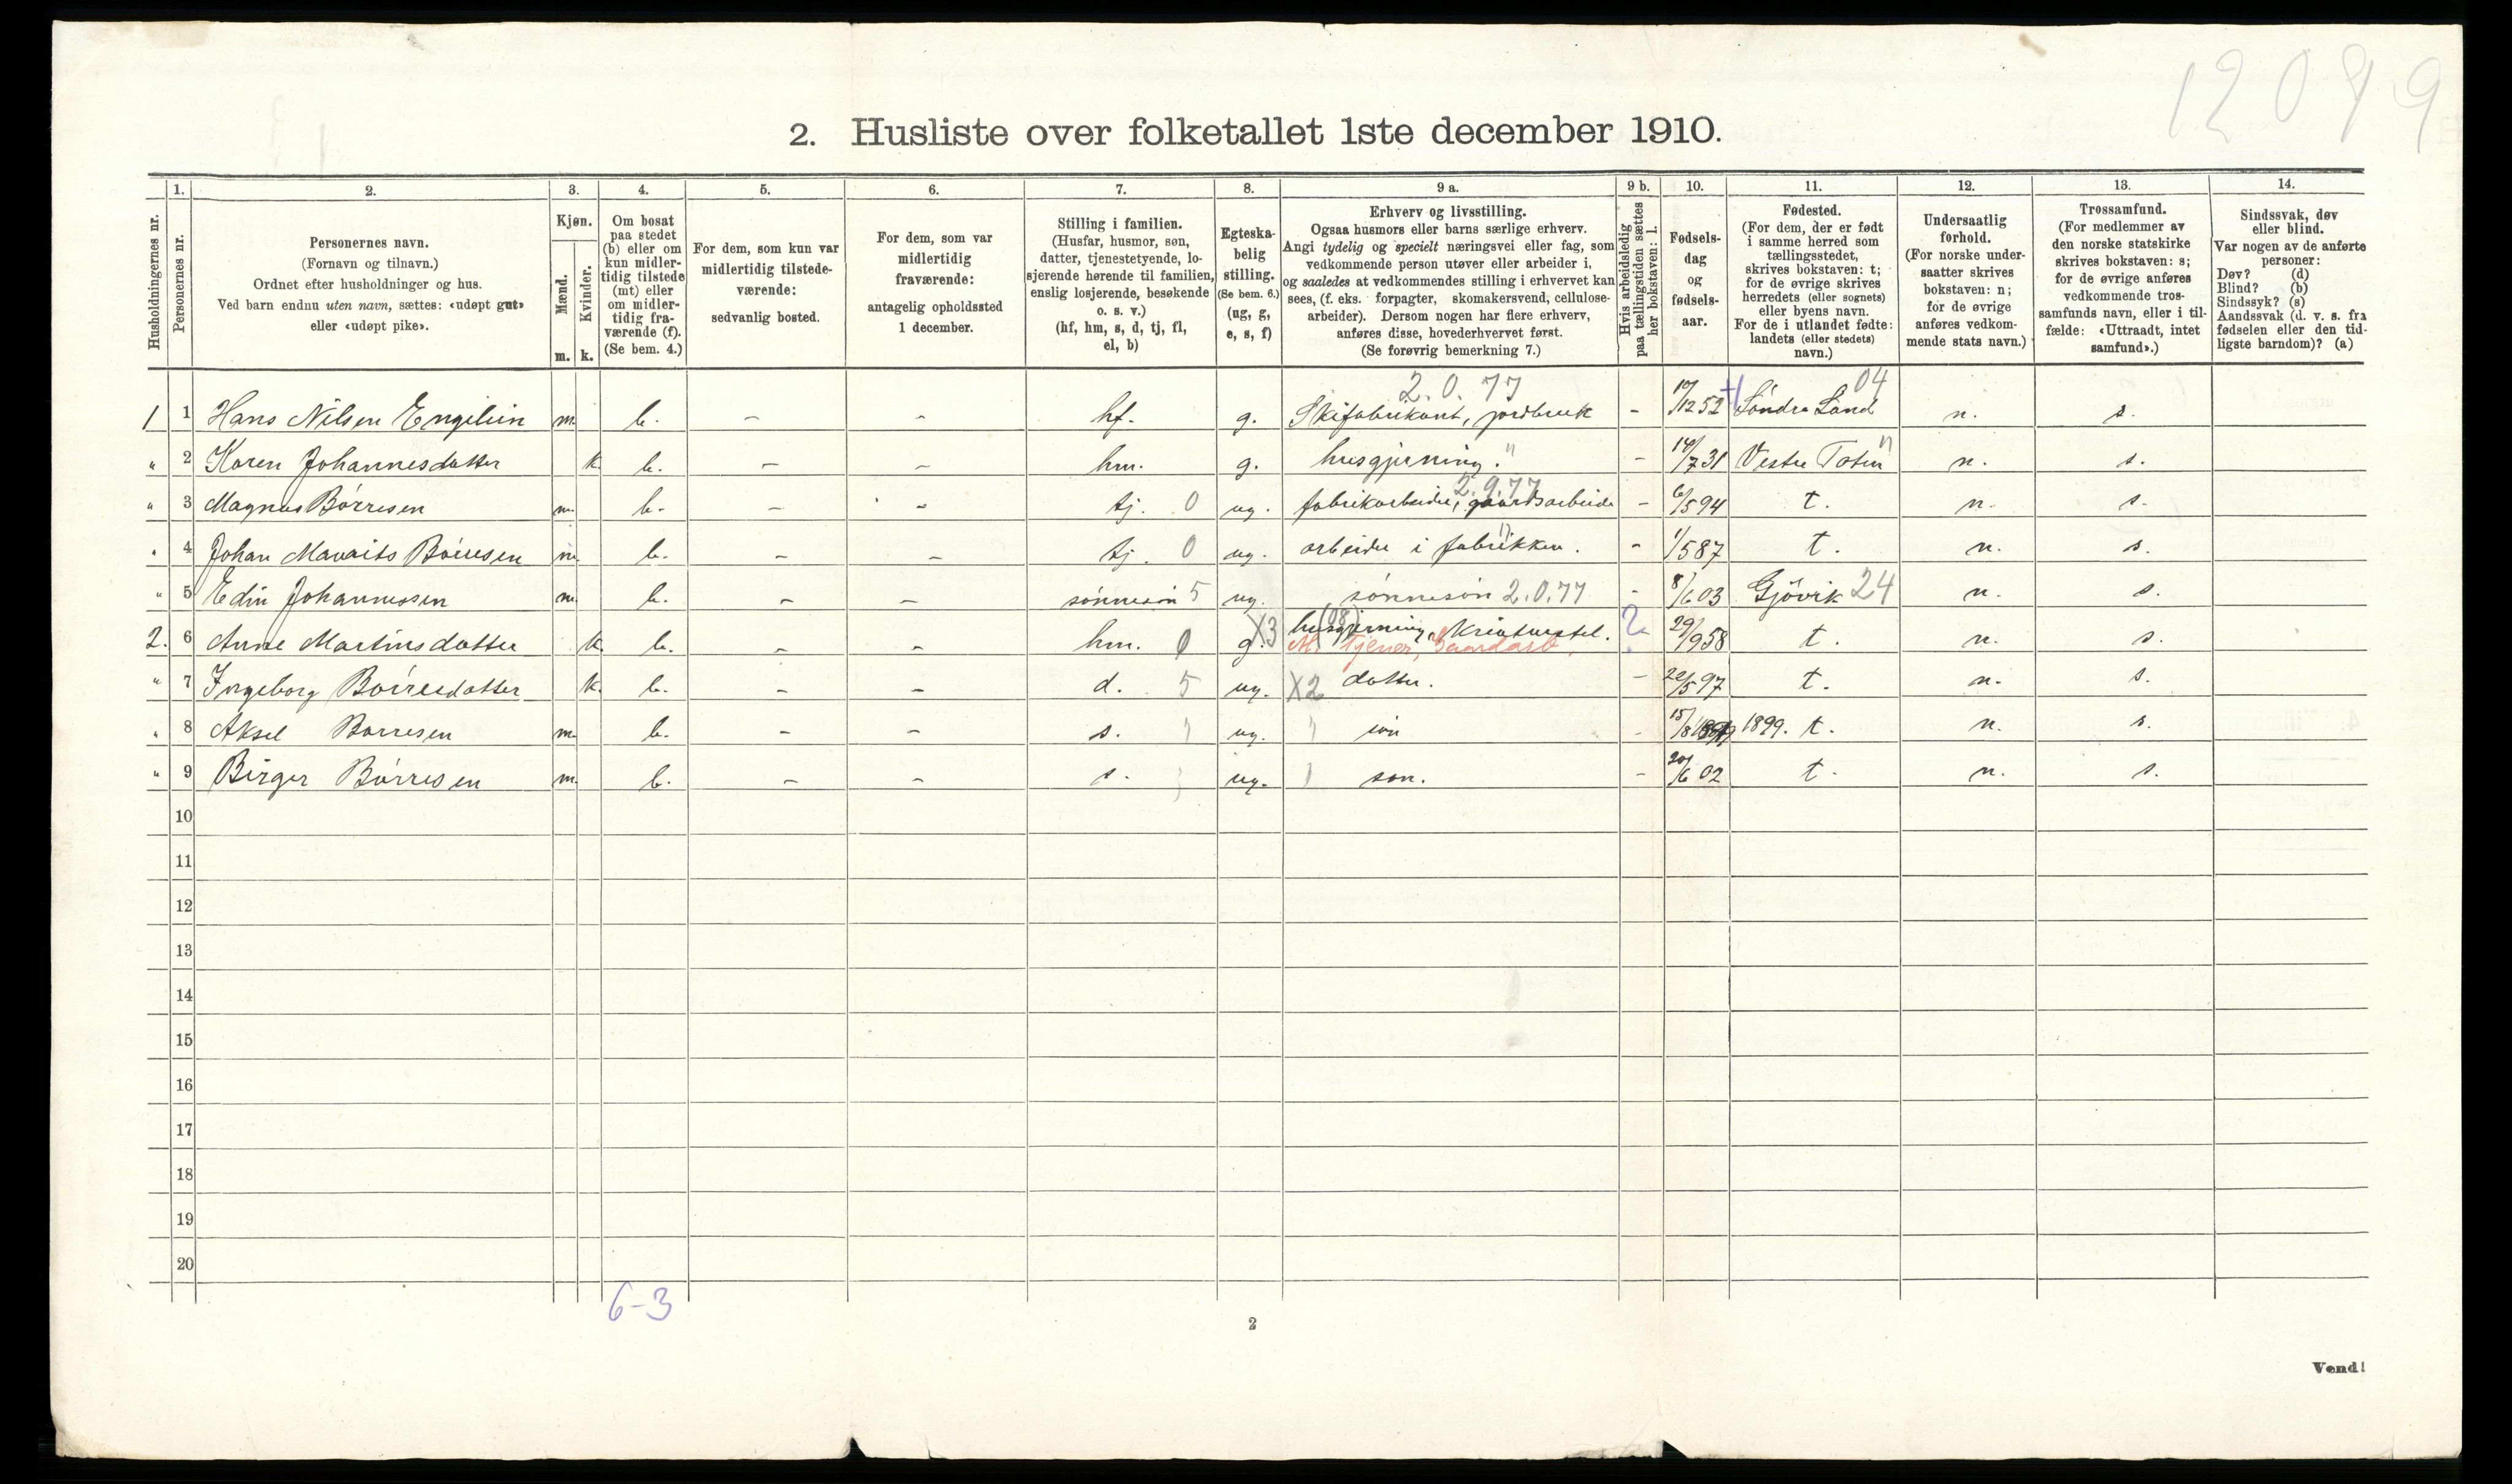 12099
2. Husliste over folketallet 1ste december 1910.
Husholdningernes nr.
1. Personernes nr.
2. Personernes navn.
(Fornavn og tilnavn.)
Ordnet efter husholdninger og hus.
Ved barn endnu uten navn, sættes: «udøpt gut»
eller «udøpt pike».
3. Kjøn.
Mænd. m.
Kvinder. k.
4. Om bosat
paa stedet
(b) eller om
kun midler-
tidig tilstede
(mt) eller
om midler-
tidig fra-
værende (f).
(Se bem. 4.)
5. For dem, som kun var
midlertidig tilstede-
værende:
sedvanlig bosted.
6. For dem, som var
midlertidig
fraværende:
antagelig opholdssted
1 december.
7. Stilling i familien.
(Husfar, husmor, søn,
datter, tjenestetyende, lo-
sjerende hørende til familien,
enslig losjerende, besøkende
o. s. v.)
(hf, hm, s, d, tj, fl,
el, b)
8. Egteska-
belig
stilling.
(Se bem. 6.)
(ug, g,
e, s, f)
9 a. Erhverv og livsstilling.
Ogsaa husmors eller barns særlige erhverv.
Angi tydelig og specielt næringsvei eller fag, som
vedkommende person utøver eller arbeider i,
og saaledes at vedkommendes stilling i erhvervet kan
sees, (f. eks. forpagter, skomakersvend, cellulose-
arbeider). Dersom nogen har flere erhverv,
anføres disse, hovederhvervet først.
(Se forøvrig bemerkning 7.)
9 b. Hvis arbeidsledig
paa tællingstiden sættes
her bokstaven: l.
10. Fødsels-
dag
og
fødsels-
aar.
11. Fødested.
(For dem, der er født
i samme herred som
tællingsstedet,
skrives bokstaven: t;
for de øvrige skrives
herredets (eller sognets)
eller byens navn.
For de i utlandet fødte:
landets (eller stedets)
navn.)
12. Undersaatlig
forhold.
(For norske under-
saatter skrives
bokstaven: n;
for de øvrige
anføres vedkom-
mende stats navn.)
13. Trossamfund.
(For medlemmer av
den norske statskirke
skrives bokstaven: s;
for de øvrige anføres
vedkommende tros-
samfunds navn, eller i til-
fælde: «Uttraadt, intet
samfund».)
14. Sindssvak, døv
eller blind.
Var nogen av de anførte
personer:
Døv? (d)
Blind? (b)
Sindssyk? (s)
Aandssvak (d. v. s. fra
fødselen eller den tid-
ligste barndom)? (a)
2.0.77 04
1 1 Hans Nilsen Engelien m. b. - - hf. g. Skifabrikant, jordbruk - 17/12 52 Söndre Land n. s.
" 2 Karen Johannesdatter k. b. - - hm. g. husgjerning. " - 14/7 31 Vestre Toten " n. s.
2.9.77
" 3 Magnus Börresen m. b. - - tj. 0 ug. fabrikarbeider, gaardsarbeide - 6/5 94 t. n. s.
" 4 Johan Maurits Börresen m. b. - - tj. 0 ug. arbeider i fabrikken. " - 1/5 87 t. n. s.
" 5 Edin Johannessen m. b. - - sönnesön 5 ug. sönnesön 2.0.77 - 8/6 03 Gjövik 24 n. s.
2. 6 Anne Martinsdatter k. b. - - hm. 0 g. X3 husgjerning, Kreaturstel. (08) ? 29/9 58 t. n. s.
M. tjener, Gaardarb.
" 7 Ingeborg Börresdatter k. b. - - d. 5 ug. X2 datter. - 22/5 97 t. n. s.
" 8 Aksel Börresen m. b. - - s. ug. sön - 15/8 1899. t. n. s.
" 9 Birger Börresen m. b. - - s. ug. sön. - 20/6 02 t. n. s.
10
11
12
13
14
15
16
17
18
19
20
6-3
2
Vend!